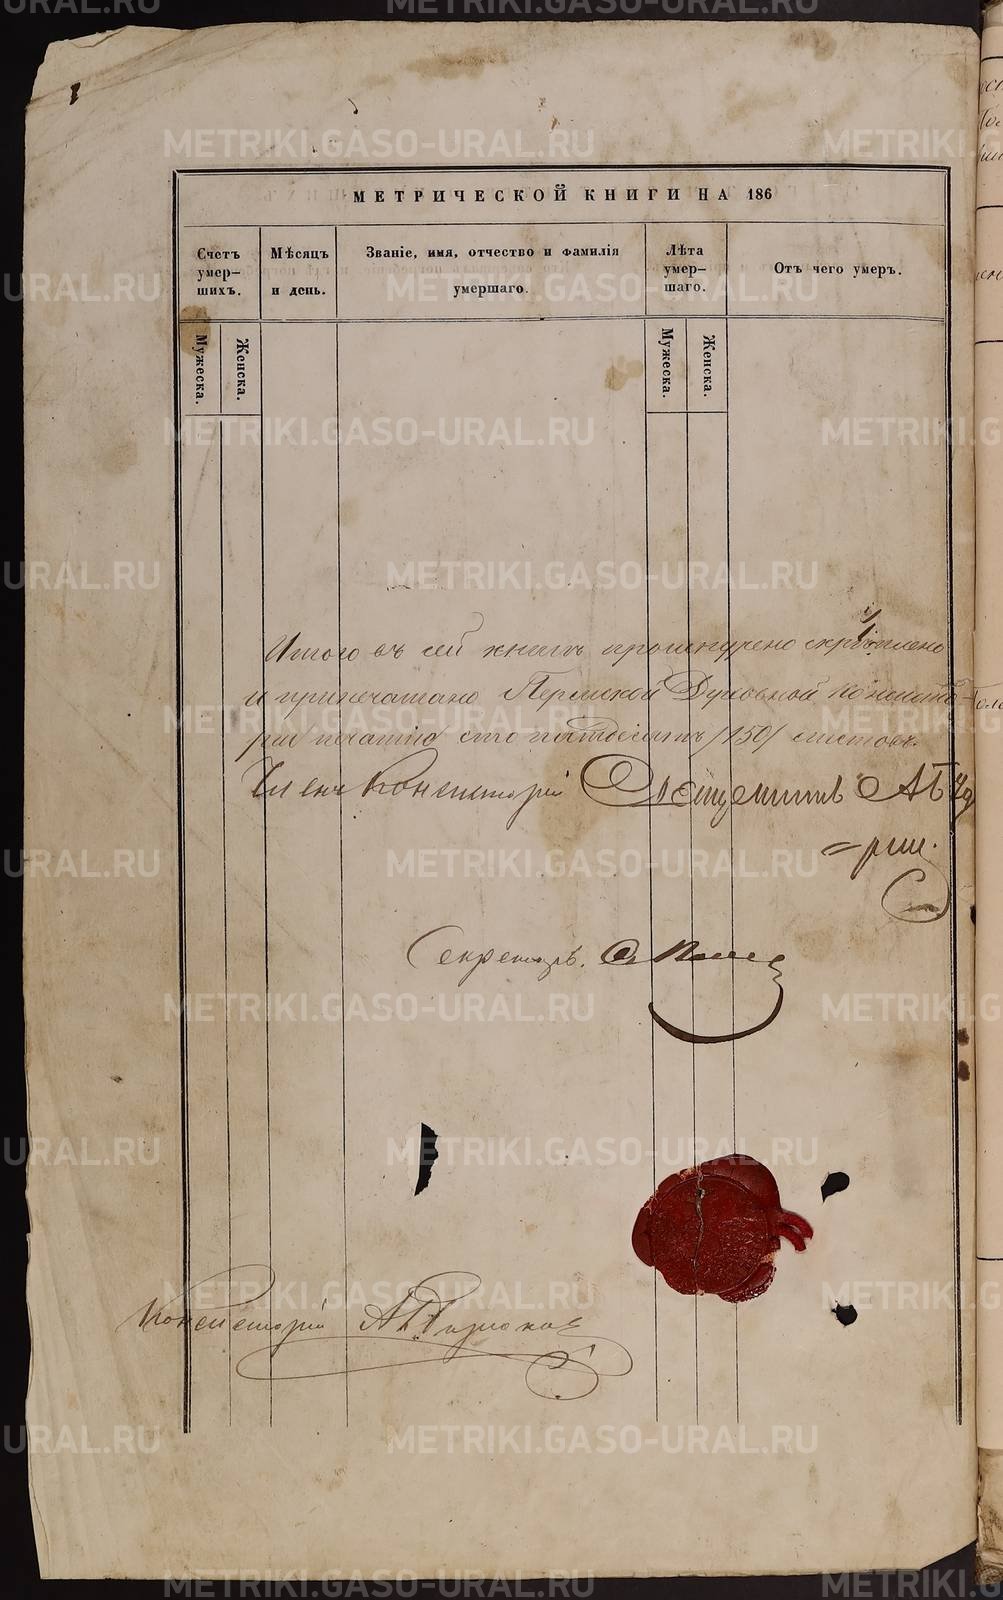 МЕТРИЧЕСКОЙ КНИГИ НА 186
Счетъ умер-шихъ.
Мѣсяцъ и день.
Званіе, имя, отчество и фамилія умершаго.
Лѣта умер-шаго.
Отъ чего умеръ.
Мужеска.
Женска.
Мужеска.
Женска.
Итого въ сей книгѣ прошнурено скрѣплено
и припечатано Пермской Духовной Консисто-
ріи печатію сто пятьдесятъ /150/ листовъ.
Членъ Консисторіи
Секретарь.
Консисторіи
METRIKI.GASO-URAL.RU